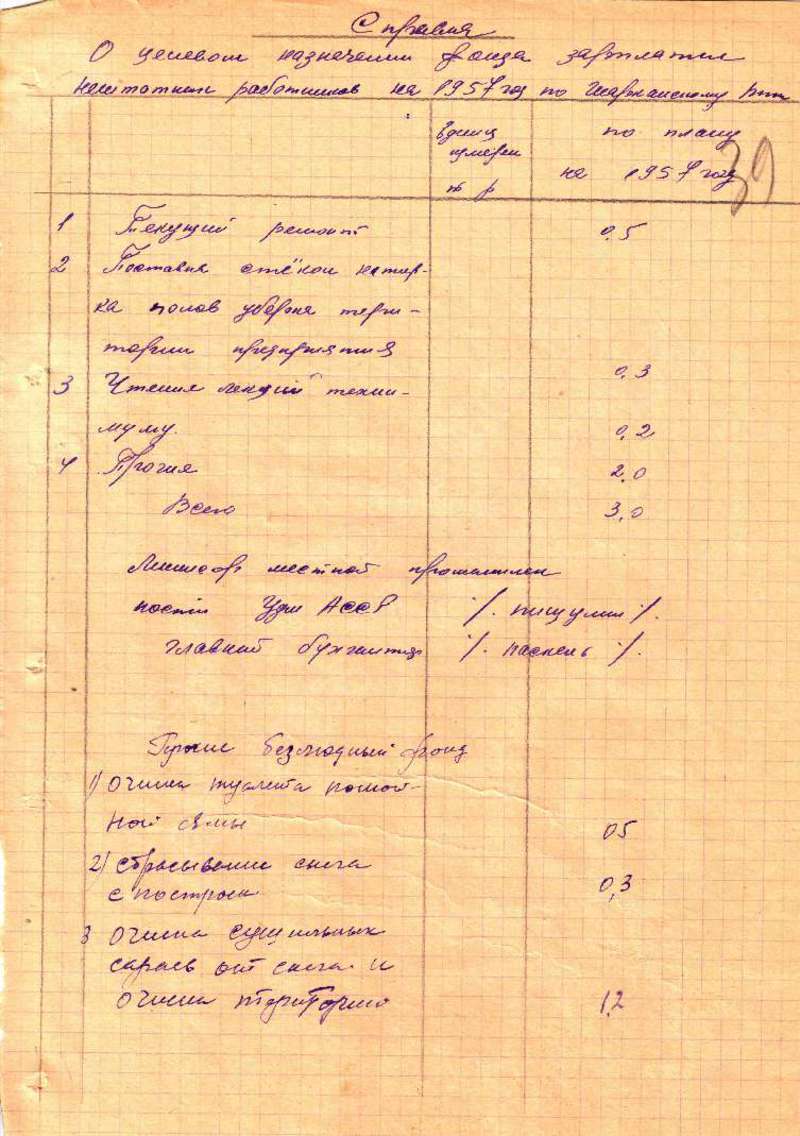 Справка
О целевом назначении фонда зарплаты
нештатных работников на 1957 год по Шарканскому
Единиц измерен т р
по плану на 1957 год
39
1 Текущий ремонт 0,5
2 Поставка стёкол натир-
ка полов уборка терри-
тории предприятия 0,3
3 Чтения лекций техми-
муму. 0,2
4 Прочия 2,0
Всего 3,0
Министр местной промышлен
ности Удм АССР /. пищулин /.
главный бухгалтер /.  /.
Прочие безлюдный фонд
1) Очистка туалета помой-
ной ямы 05
2) сбрасывание снега
с построек 0,3
3 Очистка сушильных
сараев от снега и
очистка територию 1,2